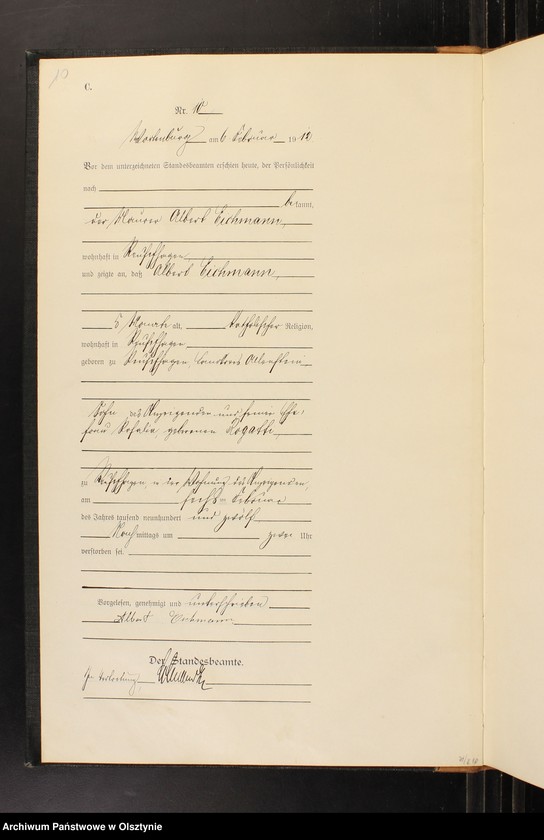 10
C.
Nr. 10
Wartenburg am 6 Februar 1912
Vor dem unterzeichneten Standesbeamten erschien heute, der Persönlichkeit
nach
bekannt,
der Maurer Albert Eichmann,
wohnhaft in Reuschhagen
und zeigte an, daß Albert Eichmann,
5 Monate alt, katholischer Religion,
wohnhaft in Reuschhagen
geboren zu Reuschhagen, Landkreis Allenstein
Sohn des Anzeigenden und seiner Ehe-
frau Rosalie geborenen Rogatti
zu Reuschhagen in der Wohnung des Anzeigenden,
am sechsten Februar
des Jahres tausend neunhundert und zwölf
Nachmittags um zwei Uhr
verstorben sei.
Vorgelesen, genehmigt und unterschrieben
Albert Eichmann
Der Standesbeamte.
In Vertretung
Archiwum Państwowe w Olsztynie